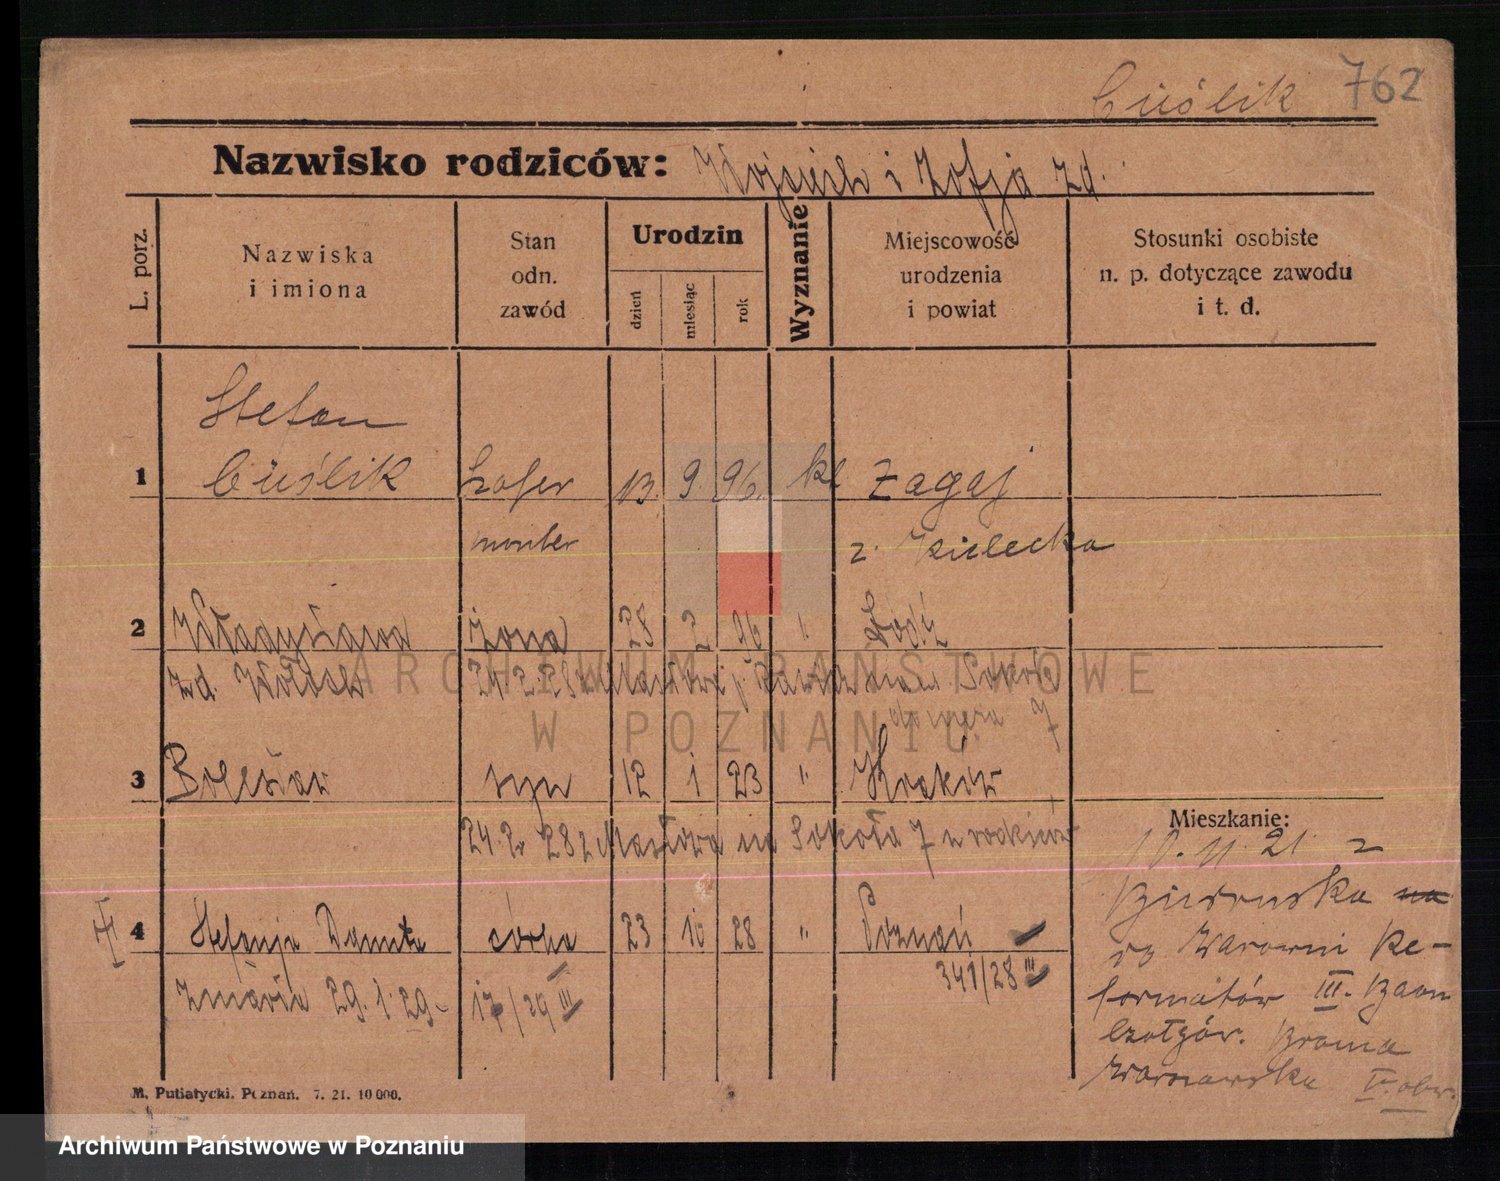 Cuślik 762
Nazwisko rodziców: Wojciech i Zofja zd.
L. porz.
Nazwiska i imiona
Stan odn. zawód
Urodzin
dzień miesiąc rok
Wyznanie
Miejscowość urodzenia i powiat
Stosunki osobiste n. p. dotyczące zawodu i t. d.
Stefan
1 Cuślik szofer 13. 9. 96. kt Zagaj
monter z. Kielecka
2 Władysława żona 28 2 96 " Łódź
zd. 24.2.28
7
3 Bolesław syn 12 1 23 " Kraków
24.2. 28 z Masztowa na Sokoła 7 rodziców
Mieszkanie:
10. 11. 21 z
4 Stefanja Danuta córka 23 10 28 " Poznań
341/28 III
zmarła 29.1.29. 17/29 III
Warowni Re-
formatów III.
Brama
Warszawska V. obw.
M. Putiatycki. Poznań. 7. 21. 10 000.
ARCHIWUM PAŃSTWOWE
W POZNANIU
Archiwum Państwowe w Poznaniu